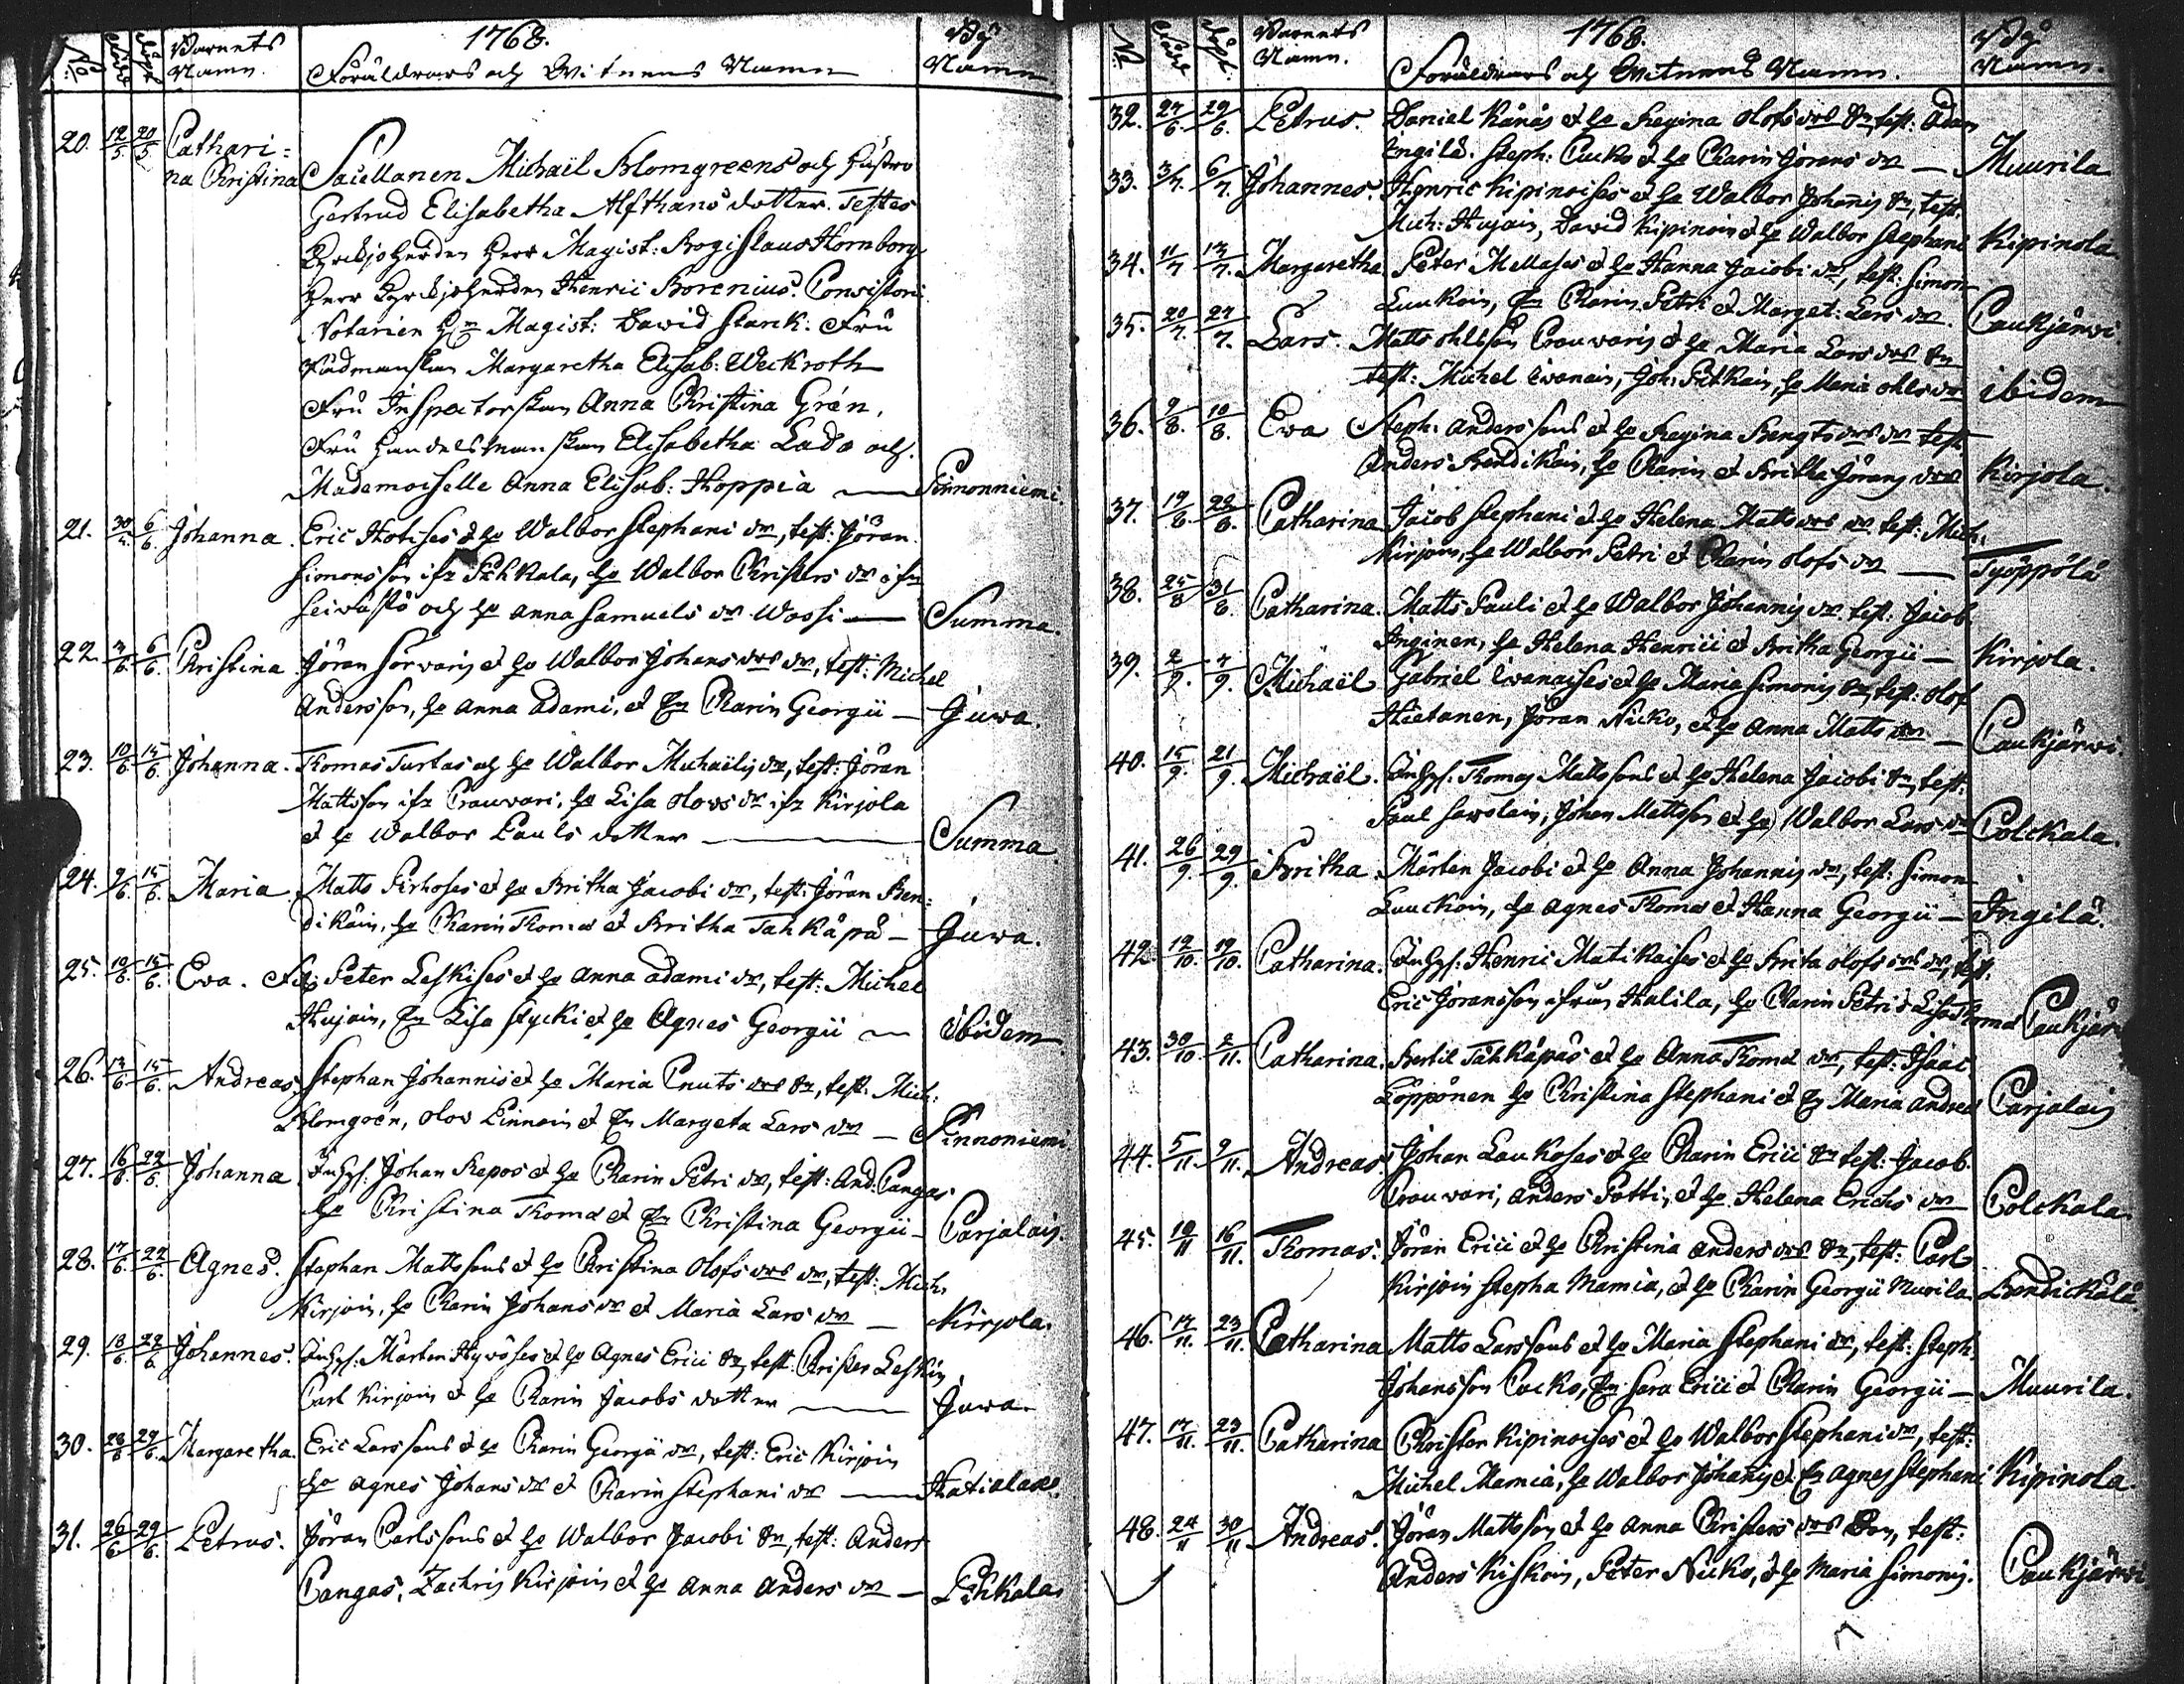 1768.
No. Född Döpt Barnets Namn. Föräldrars och Witnens Namn By Namn
20. 12/5 20/5 Cathari=
na Christina Sacellanen Michaël Blomgreens och hustro
Gertrud Elisabetha Alfthans dotter. Testes
Kyrckjoherden Herr Magist: Bogislaus Hornborg
Herr Kyrckjoherden Henric Borenius. Consistorii
Notarien H:r Magist: David Starck. Fru
Rådmanskan Margaretha Elisab: Weckroth
Fru Inspectorskan Anna Christina Grén,
Fru Handelsmanskan Elisabetha Lado och
Mademoiselle Anna Elisab: Hoppia — Pinnonniemi.
21. 6/6 Johanna. Eric Hotises et ho Walbor Stephani dr, test: Jöran
Simonsson ifr Pihkala, ho Walbor Christers dr ifr
Seivästö och ho Anna Samuels dr Wossi — Summa.
22. 6/6 Christina Jöran Sorvaris et ho Walbor Johans drs dr, test: Michel
Andersson, ho Anna Adami, et Pig Carin Georgii — Juwa.
23. 10/6 15/6 Johanna. Thomas Turtas och ho Walbor Michaëlis dr, test: Jöran
Mattsson ifr Crouvari, ho Lisa Olovs dr ifr Kirjola
et ho Walbor Pauls dotter — Summa
24. 9/6 15/6 Maria. Matts Pirhoses et ho Britha Jacobi dr, test: Jöran Ben=
dikäin, ho Carin Thomæ et Britha Tahkäpä — Juwa.
25. 10/6 15/6 Eva. Peter Leskises et ho Anna Adami dr, test: Michel
Hujain, Pig Lisa Stycki et ho Agnes Georgii — ibidem
26. 15/6 Andreas Stephan Johannis et ho Maria Cnuts drs dr, test: Mich:
Blomgrén, Olov Pinnoin et Pig Margeta Lars dr — Pinnoniemi.
27. 16/6 22/6 Johanna Inhys. Johan Repos et ho Carin Petri dr, test: And. Cangas
ho Christina Thomæ et Pig Christina Georgii — Carjalais.
28. 17/6 22/6 Agnes. Stephan Mattssons et ho Christina Olofs drs dr, test: Mich.
Kirjoin, ho Carin Johans dr et Maria Lars dr — Kirjola.
29. 18/6 22/6 Johannes. Inhys. Mårten Hyvöses et ho Agnes Erici dr, test: Christer Leskin
Carl Kirjoin et ho Carin Jacobs dotter — Juwa
30. 28/6 29/6 Margaretha. Eric Larssons et ho Carin Georgii dr, test: Eric Kirjoin
ho Agnes Johans dr et Carin Stephani dr — Hatialax.
31. 26/6 29/6 Petrus. Jöran Carlssons et ho Walbor Jacobi dr, test: Anders
Cangas, Zachris Kirjoin et ho Anna Anders dr — Pihkala
1768.
No. Född Döpt Barnets Namn. Föräldrars och Witnens Namn. By Namn.
32. 27/6 29/6 Petrus. Daniel Känäs et ho Regina Olofs drs dr, test: Adam
Ingilä. Steph: Cucko et ho Carin Jörans dr — Muurila
33. 3/7 6/7 Johannes. Henric Kipinoises et ho Walbor Johannis dr, test:
Mich: Hujain, David Kipinoin et ho Walbor Stephani Kipinola
34. 11/7 13/7 Margaretha Peter Mellases et ho Hanna Jacobi dr, test: Simon
Luukoin, Pig Carin Petri et Marget: Lars dr. Caukjärwi.
35. 20/7 27/7 Lars. Matts Ohlsson Crouvaris et ho Maria Lars drs dr
test: Michel Ivanain, Joh: Pitkäin, ho Maria Ohls dr ibidem
36. 9/8 10/8 Eva Steph. Anderssons et ho Regina Bengts drs dr test
Anders Bendikäin, ho Carin et Britha Jörans drar Kirjola.
37. 19/8 22/8 Catharina Jacob Stephani et ho Helena Matts drs dr test: Mich.
Kirjoin, ho Walbor Petri et Carin Olofs dr — Työppölä
38. 25/8 31/8 Catharina. Matts Pauli et ho Walbor Johannis dr. test: Jacob
Inginen, ho Helena Henrici et Britha Georgii — Kirjola.
39. 2/9 7/9 Michaël Gabriel Ivanaises et ho Maria Simonis dr, test: Olof
Hietanen, Jöran Nicko, et ho Anna Matts dr — Caukjärwi.
40. 15/9 21/9 Michaël. Inhys. Thomas Mattssons et ho Helena Jacobi dr, test:
Paul Savolain, Johan Mattsson et ho Walbor Lars dr Colckala.
41. 26/9 29/9 Britha Mårten Jacobi et ho Anna Johannis dr, test: Simon
Luuckoin, ho Agnes Thomæ et Hanna Georgii — Ingilä.
42. 12/10 19/10 Catharina. Inhys. Henric Matikaises et ho Brita Olofs drs dr, test.
Eric Jöransson ifrån Halila, ho Carin Petri et Lisa Thomæ Caukjär
43. 30/10 2/11 Catharina. Bertil Tähkäpäs et ho Anna Thomæ dr, test: Isaac
Löppönen ho Christina Stephani et Pig Maria Andreæ Carjalais
44. 5/11 9/11 Andreas. Johan Laukoses et ho Carin Erici dr test: Jacob
Crouvari, Anders Potti, et ho Helena Erichs dr — Colckala
45. 10/11 16/11 Thomas. Jöran Erici et ho Christina Anders drs dr, test: Carl
Kirjoin Stepha Mamia, et ho Carin Georgii Murila Bendickälä
46. 17/11 23/11 Catharina Matts Larssons et ho Maria Stephani dr, test: Steph.
Johansson Cucko, Pig Sara Erici et Carin Georgii — Muurila.
47. 17/11 23/11 Catharina Christer Kipinoises et ho Walbor Stephani dr, test:
Michel Mamia, ho Walbor Johannis et Pig Agnes Stephani Kipinola
48. 24/11 30/11 Andreas. Jöran Mattsson et ho Anna Christers drs Son, test:
Anders Kiskoin, Peter Nicko, et ho Maria Simonis. Caukjärwi